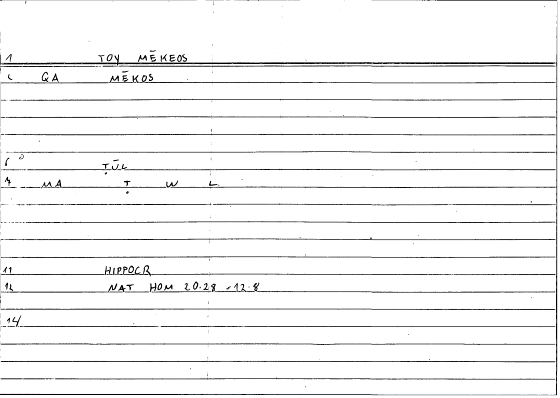 1 TOY MĒKEOS
QA MĒKOS
6 ṬŪL
MA Ṭ W L
11 HIPPOCR
12 NAT HOM 20.28 -12.8
14